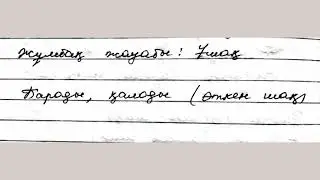 Жұмбақ жауабы: Ұшақ
Барады, қалады (өткен шақ)